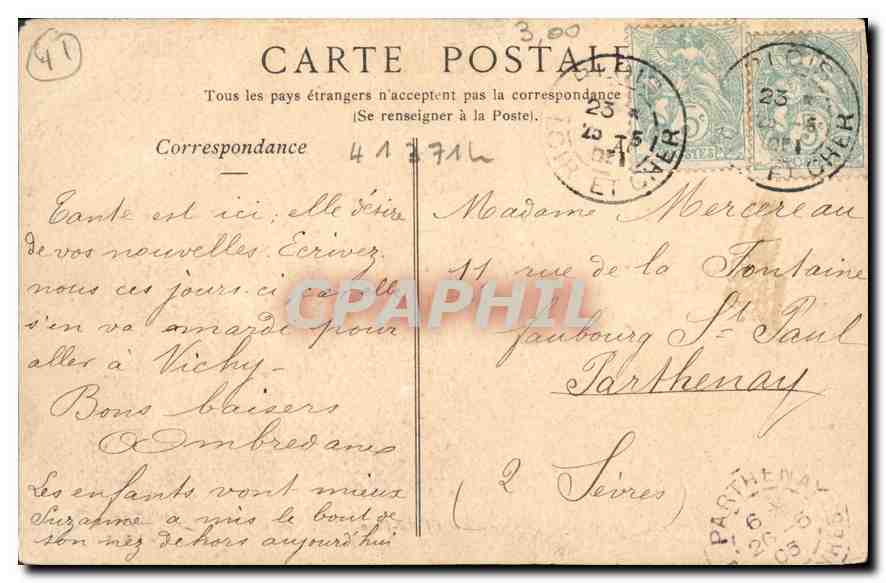 41
3,00
CARTE POSTALE
Tous les pays étrangers n'acceptent pas la correspondance
(Se renseigner à la Poste).
Correspondance
413714
BLOIS
23
25 -5
LOIR ET CHER
BLOIS
23
ET CHER
Tante est ici; elle désire
de vos nouvelles. Ecrivez
nous ces jours-ci car elle
s'en va mardi pour
aller à Vichy -
Bons baisers
Ombredane
Les enfants vont mieux
Suzanne a mis le bout de
son nez dehors aujourd'hui
Madame Mercereau
11 rue de la Fontaine
faubourg St Paul
Parthenay
(2 Sèvres)
PARTHENAY
6
26 -5
05
GPAPHIL